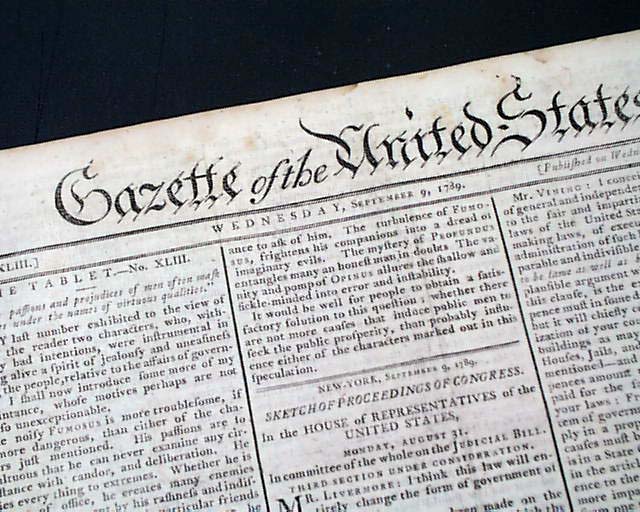 Gazette of the United States
WEDNESDAY, SEPTEMBER 9, 1789.
[Published on
XLIII.]
TABLET.—No. XLIII.
passions and prejudices of men often mask
under the names of virtuous qualities."
last number exhibited to the view of
the reader two characters, who, with-
bad intentions, were instrumental in
alive a spirit of jealousy and uneasiness
the people, relative to the affairs of govern
I shall now introduce some more of my
whose motives perhaps are not
so unexceptionable.
noisy FUMOSUS is more troublesome, if
more dangerous, than either of the cha-
just mentioned. His passions are to
that he can never examine any cir-
with candor, and deliberation. He
every thing to extremes. Whether he
of office, he creates many enemies
by his rashness and indis-
particular friends
ance to ask of him. The turbulence of FUMO-
SUS, frightens his companions into a dread of
imaginary evils. The mystery of PROFUNDUS
entangles many an honest man in doubts. The va-
nity and pomp of OPINUS allures the shallow and
fickle-minded into error and instability.
It would be well for people to obtain a satis-
factory solution to this question; whether there
are not more causes that induce public men to
seek the public prosperity, than probably influ-
ence either of the characters marked out in this
speculation.
NEW-YORK, SEPTEMBER 9, 1789.
SKETCH OF PROCEEDINGS OF CONGRESS.
In the HOUSE of REPRESENTATIVES of the
UNITED STATES,
MONDAY, AUGUST 31.
In committee of the whole on the JUDICIAL BILL.
THIRD SECTION UNDER CONSIDERATION.
MR. LIVERMORE: I think this law will en-
tirely change the form of government of
been made on the
Mr. VINING: I
of general and independent
to the fair and impartial
laws of the United
making laws, of
administration of such
parable and indivisible
to be lame as well as
plausible argument
this clause, is the
pence must in some
but it will chiefly
ization of your
buildings, as may
houses, Jails, and
mentioned—and
pences among
paid for the
your laws: For
cem of government
ply in a
causes must
is in a State
in the article